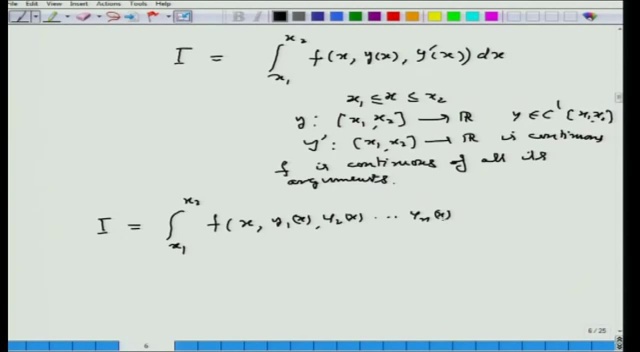 File Edit View Insert Actions Tools Help
I = ∫_{x₁}^{x₂} f(x, y(x), y'(x)) dx
x₁ ≤ x ≤ x₂
y : [x₁, x₂] → ℝ y ∈ C¹ [x₁, x₂]
y' : [x₁, x₂] → ℝ is continuous
f is continuous of all its
arguments.
I = ∫_{x₁}^{x₂} f(x, y₁(x), y₂(x) ... yₙ(x)
6 / 25
6